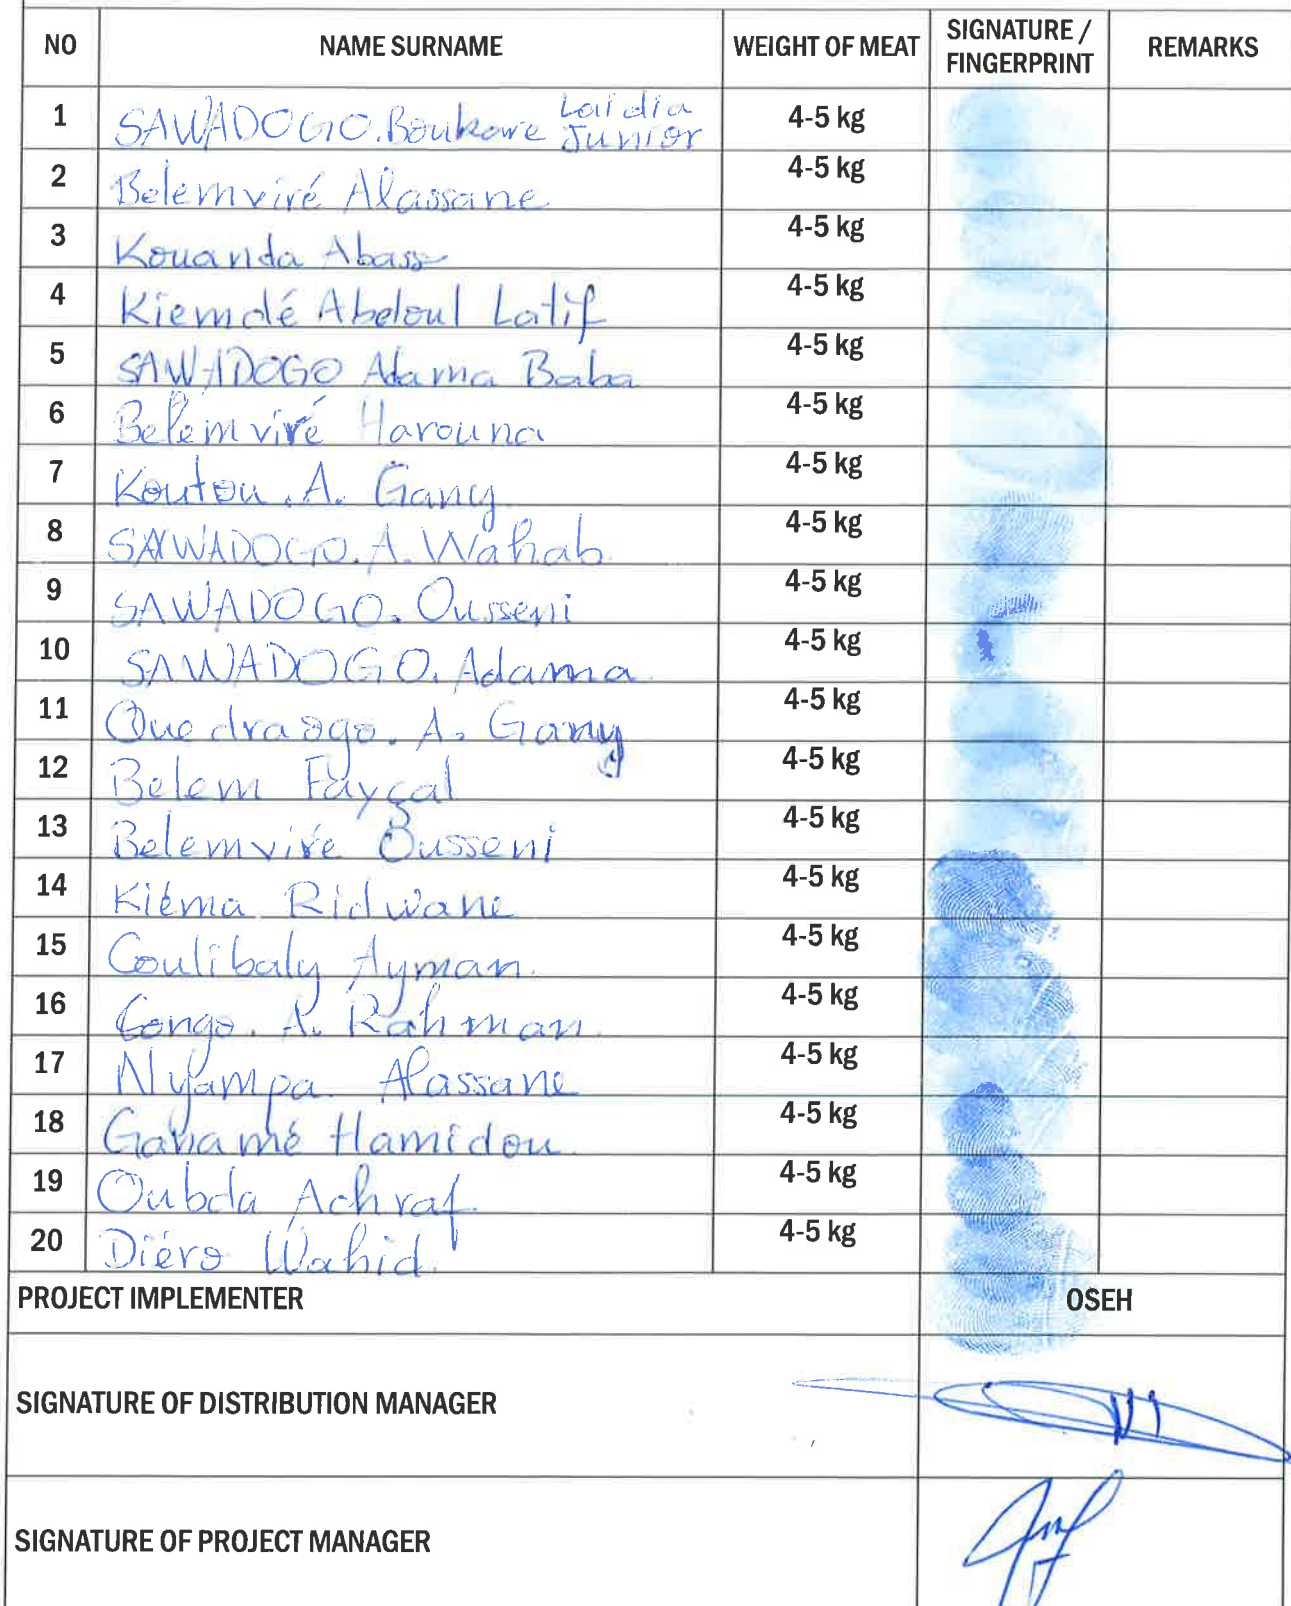 NO NAME SURNAME WEIGHT OF MEAT SIGNATURE / FINGERPRINT REMARKS
1 SAWADOGO. Boukare Laidia Junior 4-5 kg
2 Belemviré Alassane 4-5 kg
3 Kouanda Abass 4-5 kg
4 Kiemdé Abdoul Latif 4-5 kg
5 SAWADOGO Adama Baba 4-5 kg
6 Belemviré Harouna 4-5 kg
7 Koutou. A. Gany 4-5 kg
8 SAWADOGO. A. Wahab 4-5 kg
9 SAWADOGO. Ousseni 4-5 kg
10 SAWADOGO. Adama 4-5 kg
11 Ouedraogo. A. Gany 4-5 kg
12 Belem Fayçal 4-5 kg
13 Belemviré Ousseni 4-5 kg
14 Kiéma Ridwane 4-5 kg
15 Coulibaly Ayman. 4-5 kg
16 Congo. A. Rahman. 4-5 kg
17 Nyampa Alassane 4-5 kg
18 Ganamé Hamidou 4-5 kg
19 Oubda Achraf 4-5 kg
20 Diéro Wahid. 4-5 kg
PROJECT IMPLEMENTER OSEH
SIGNATURE OF DISTRIBUTION MANAGER
SIGNATURE OF PROJECT MANAGER